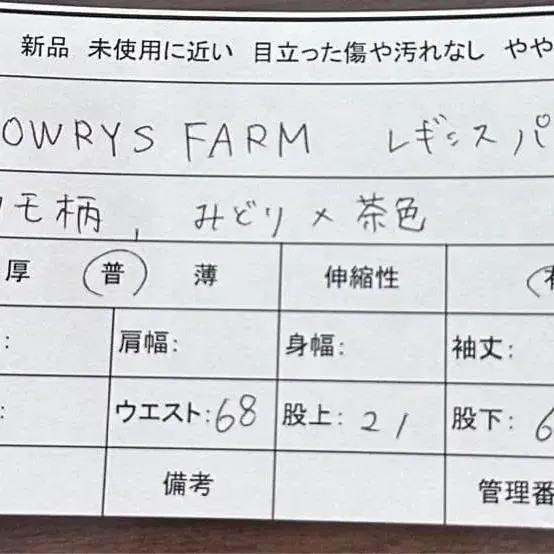 新品 未使用に近い 目立った傷や汚れなし やや
OWRYS FARM レギンスパ
モ柄, みどり×茶色
厚 普 薄 伸縮性 有
: 肩幅: 身幅: 袖丈:
: ウエスト:68 股上: 21 股下: 6
備考 管理番